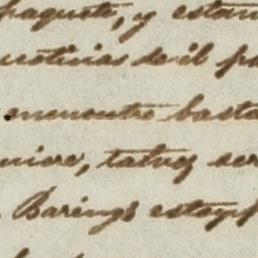 paquete, y estan
noticias de él pa
encuentro basta
niere, talvez ser
Barings estoy